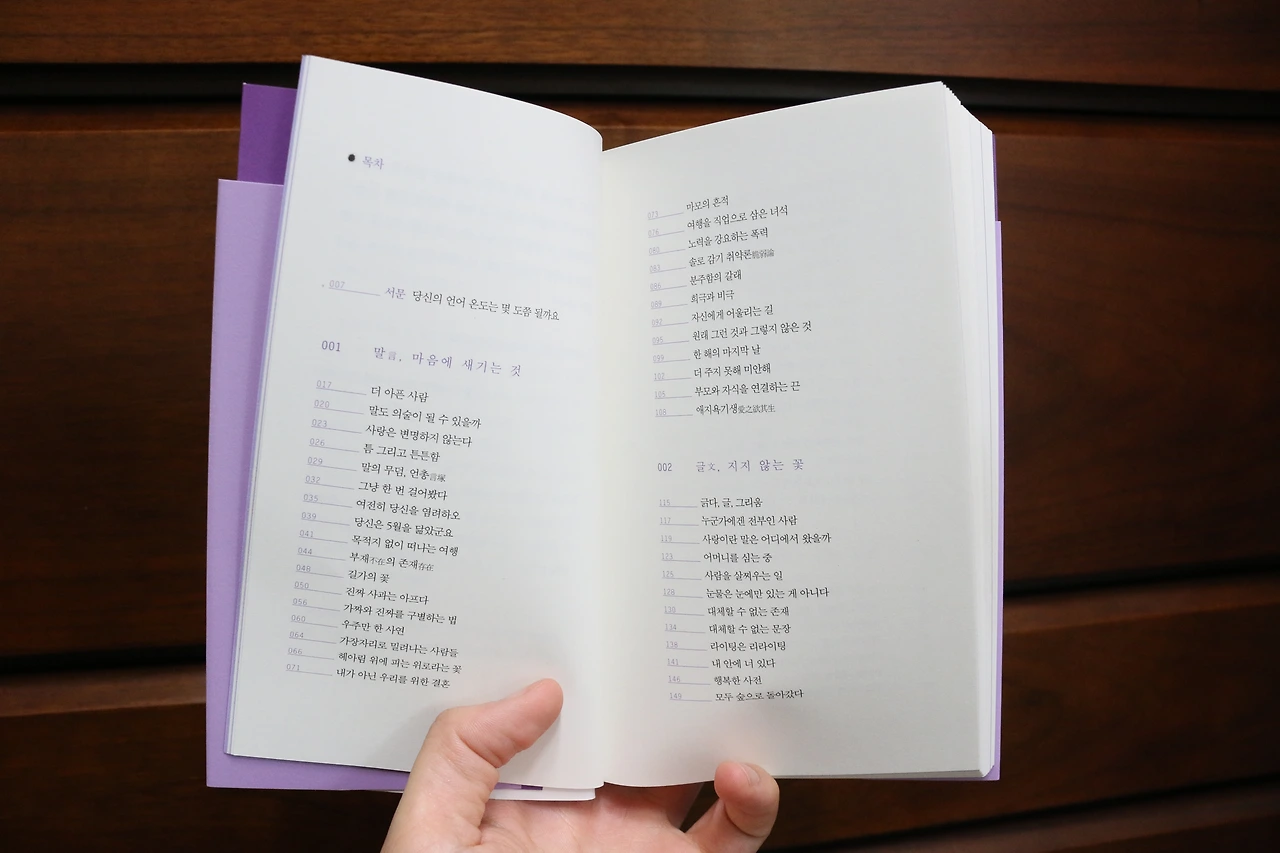 목차
007 서문 당신의 언어 온도는 몇 도쯤 될까요
001 말言, 마음에 새기는 것
017 더 아픈 사람
020 말도 의술이 될 수 있을까
023 사랑은 변명하지 않는다
026 틈 그리고 튼튼함
029 말의 무덤, 언총言塚
032 그냥 한 번 걸어봤다
035 여전히 당신을 염려하오
039 당신은 5월을 닮았군요
041 목적지 없이 떠나는 여행
044 부재不在의 존재存在
048 길가의 꽃
050 진짜 사과는 아프다
056 가짜와 진짜를 구별하는 법
060 우주만 한 사연
064 가장자리로 밀려나는 사람들
066 헤아림 위에 피는 위로라는 꽃
071 내가 아닌 우리를 위한 결혼
073 마모의 흔적
076 여행을 직업으로 삼은 녀석
080 노력을 강요하는 폭력
083 솔로 감기 취약론脆弱論
086 분주함의 갈래
089 희극과 비극
092 자신에게 어울리는 길
095 원래 그런 것과 그렇지 않은 것
099 한 해의 마지막 날
102 더 주지 못해 미안해
105 부모와 자식을 연결하는 끈
108 애지욕기생愛之欲其生
002 글文, 지지 않는 꽃
115 긁다, 글, 그리움
117 누군가에겐 전부인 사람
119 사랑이란 말은 어디에서 왔을까
123 어머니를 심는 중
125 사람을 살찌우는 일
128 눈물은 눈에만 있는 게 아니다
130 대체할 수 없는 존재
134 대체할 수 없는 문장
138 라이팅은 리라이팅
141 내 안에 너 있다
146 행복한 사전
149 모두 숲으로 돌아갔다